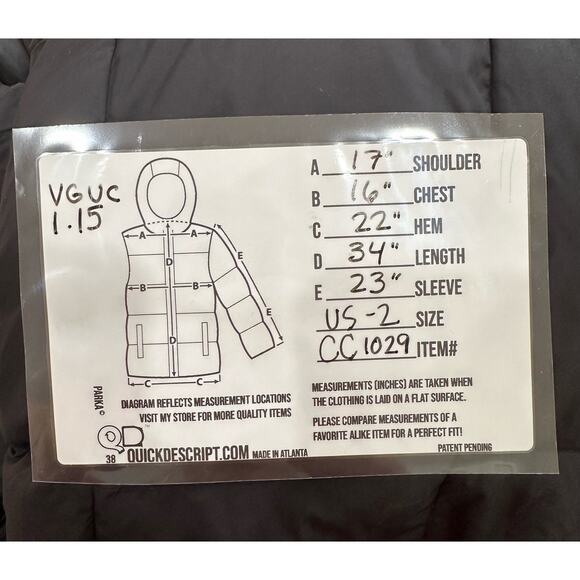 VGUC
1.15
A A
D
E
B B
D
E
C C
A 17" SHOULDER
B 16" CHEST
C 22" HEM
D 34" LENGTH
E 23" SLEEVE
US-2 SIZE
CC1029 ITEM#
PARKA ©
DIAGRAM REFLECTS MEASUREMENT LOCATIONS
VISIT MY STORE FOR MORE QUALITY ITEMS
MEASUREMENTS (INCHES) ARE TAKEN WHEN
THE CLOTHING IS LAID ON A FLAT SURFACE.
PLEASE COMPARE MEASUREMENTS OF A
FAVORITE ALIKE ITEM FOR A PERFECT FIT!
QD™
38 QUICKDESCRIPT.COM MADE IN ATLANTA
PATENT PENDING